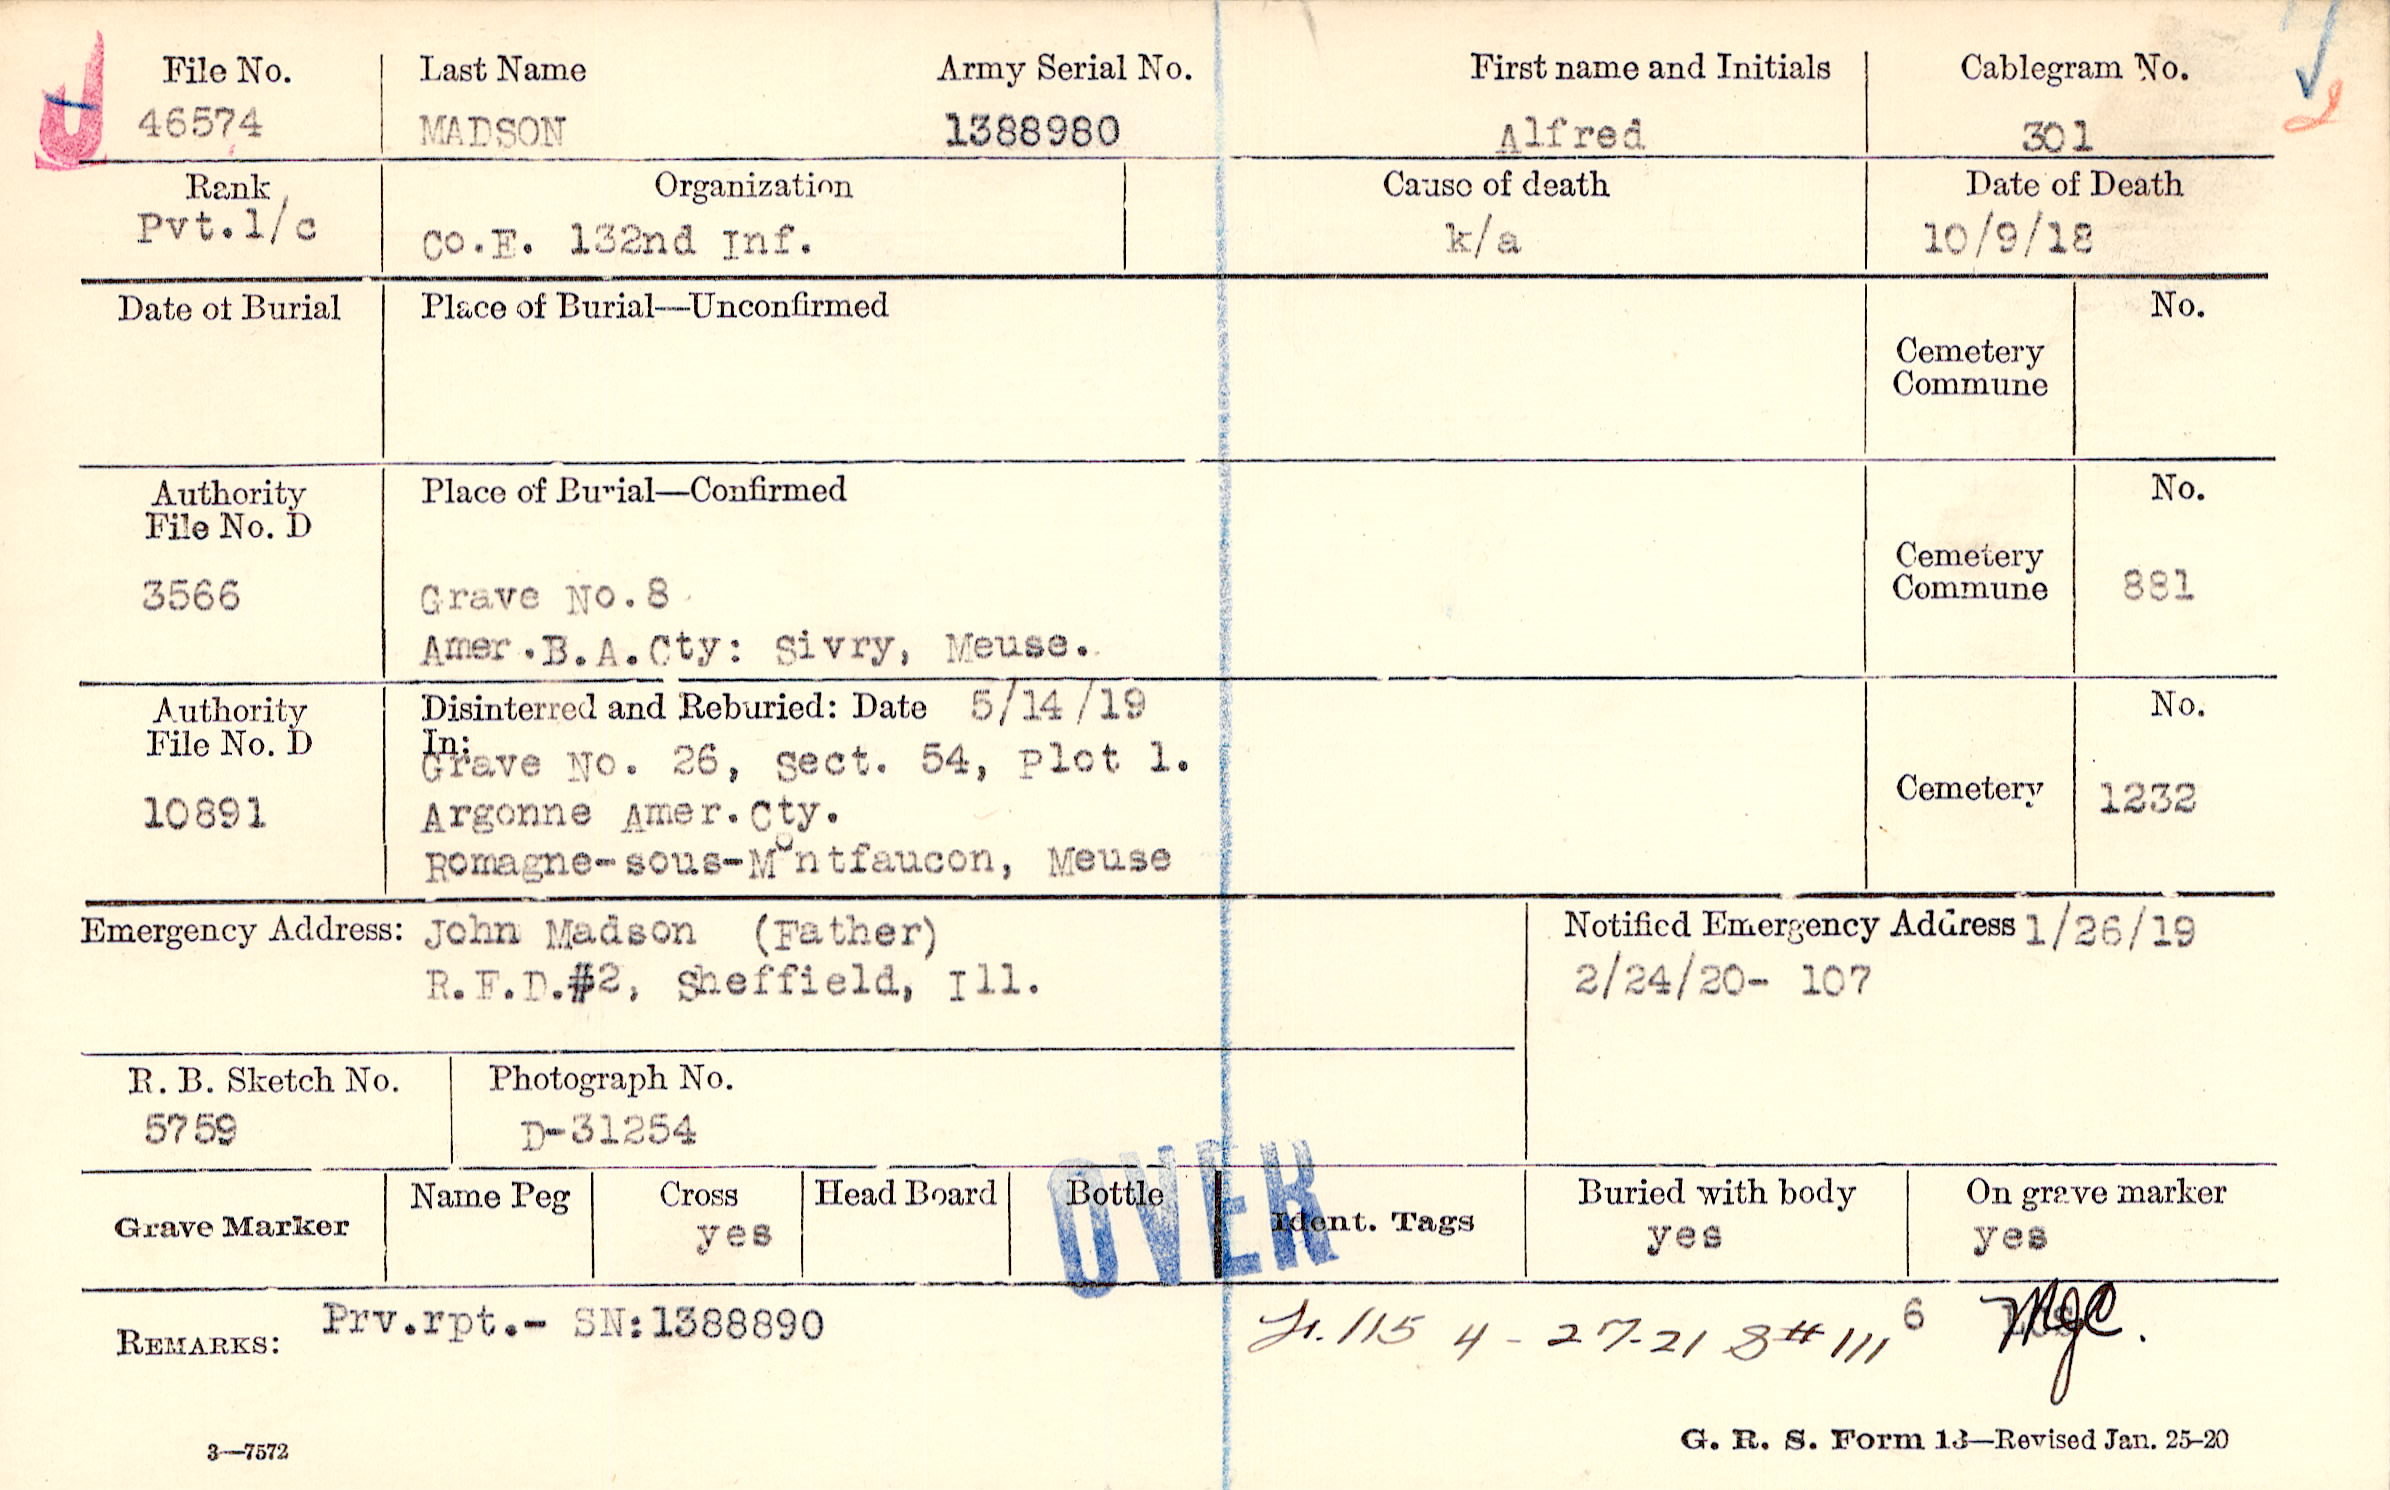 File No. Last Name Army Serial No. First name and Initials Cablegram No.
46574 MADSON 1388980 Alfred 301
Rank Organization Cause of death Date of Death
Pvt.1/c Co.E. 132nd Inf. k/a 10/9/18
Date of Burial Place of Burial—Unconfirmed No.
Cemetery
Commune
Authority Place of Burial—Confirmed No.
File No. D
Cemetery
3566 Grave No.8 Commune 881
Amer.B.A.Cty: Sivry, Meuse.
Authority Disinterred and Reburied: Date 5/14/19 No.
File No. D In:
Grave No. 26, Sect. 54, Plot 1.
10891 Argonne Amer.Cty. Cemetery 1232
Romagne-sous-Montfaucon, Meuse
Emergency Address: John Madson (Father) Notified Emergency Address 1/26/19
R.F.D.#2, Sheffield, Ill. 2/24/20- 107
R. B. Sketch No. Photograph No.
5759 D-31254
OVER
Name Peg Cross Head Board Bottle Buried with body On grave marker
Grave Marker yes Ident. Tags yes yes
REMARKS: Prv.rpt.- SN:1388890 115 4-27-21 S# 111 6 MJC.
3—7572 G. R. S. Form 13—Revised Jan. 25-20